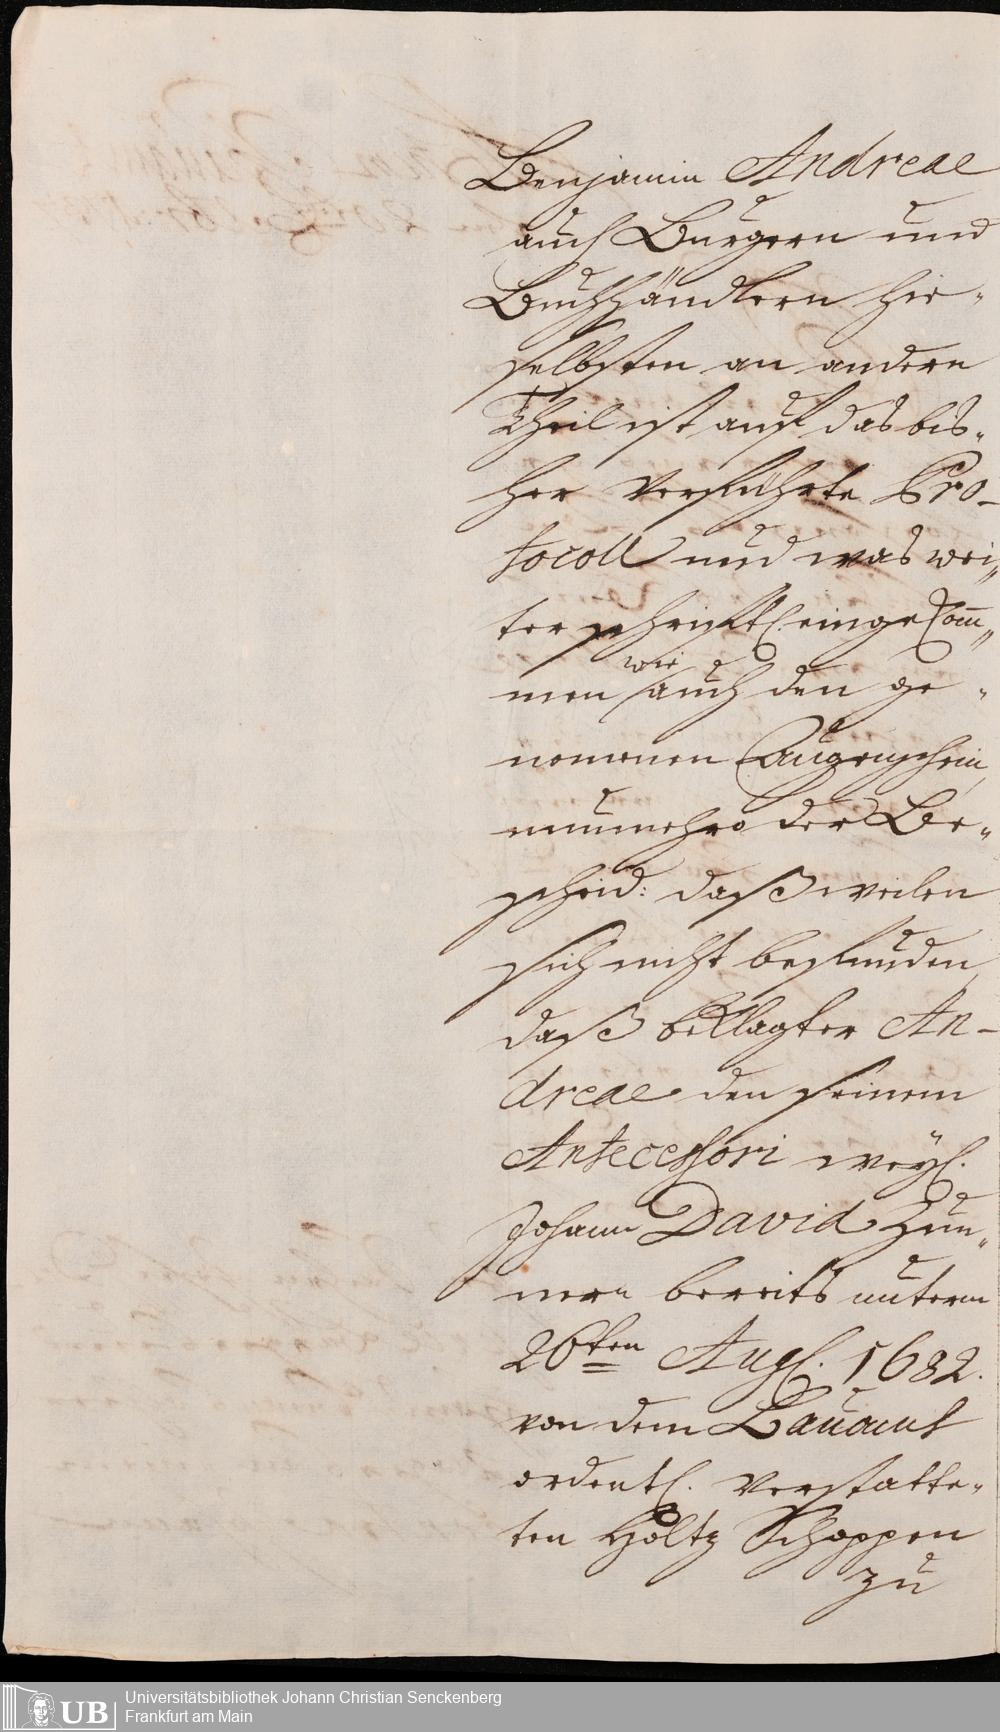 Benjamin Andreae
auch Burgern und
Buchhändlern hie-
selbsten an andern
Theil ist auf das bis-
her verführte Pro-
tocoll und was wei-
ter schriftl. eingekom̅-
men wie auch den ge-
nommenen Augenschein,
nunmehro der Be-
scheid: daß weilen
sich nicht befunden,
daß beklagter An-
dreae den seinem
Antecessori weyl.
Johann David Zun-
nern bereits unterm
26ten Augl. 1682.
von dem Bauamt
ordentl. verstatte-
ten Holtz Schoppen
zu
UB
Universitätsbibliothek Johann Christian Senckenberg
Frankfurt am Main